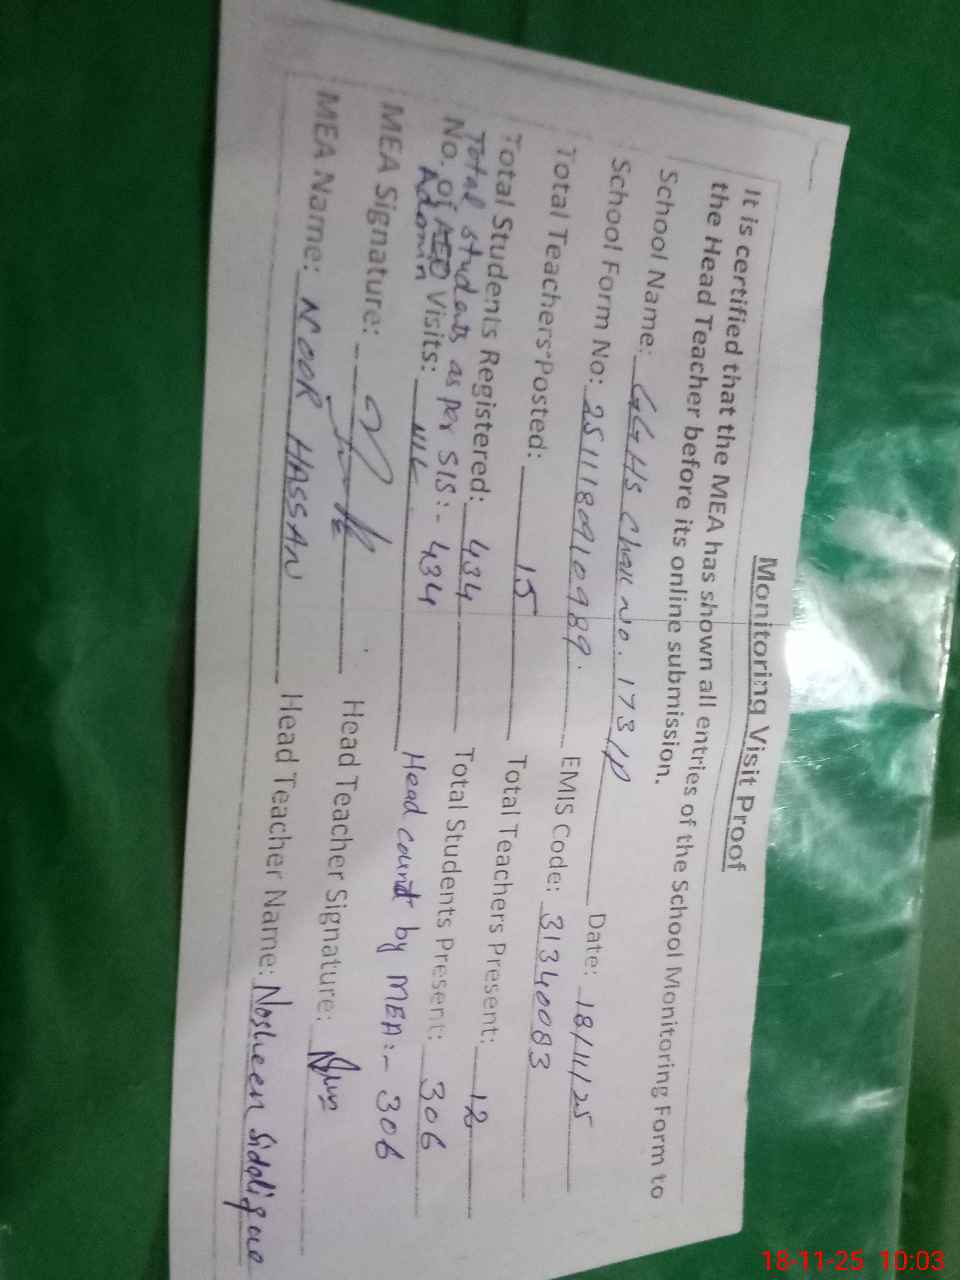 Monitoring Visit Proof
It is certified that the MEA has shown all entries of the School Monitoring Form to
the Head Teacher before its online submission.
School Name: GGHS Chak No. 173/P Date: 18/11/25
School Form No: EMIS Code: 31340083
Total Teachers Posted: 15 Total Teachers Present: 12
Total Students Registered: 434 Total Students Present: 306
Total students as per SIS:- 434 Head count by MEA:- 306
No. of AEO Visits: NIL
Admin
MEA Signature: Head Teacher Signature:
MEA Name: NOOR HASSAN Head Teacher Name: Nosheen Siddique
18-11-25 10:03